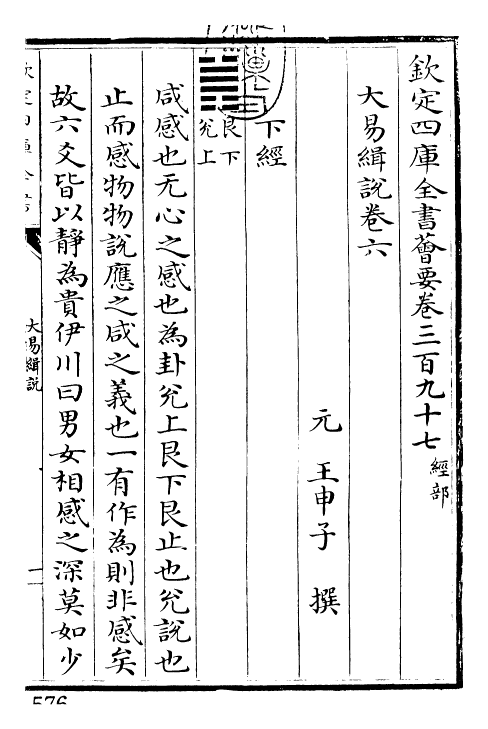 欽定四庫全書薈要卷三百九十七 經部
大易緝說卷六
元 王申子 撰
下經
艮下
兊上
咸感也无心之感也為卦兊上艮下艮止也兊說也
止而感物物說應之咸之義也一有作為則非感矣
故六爻皆以靜為貴伊川曰男女相感之深莫如少
欽定四庫全書
大易緝說
576